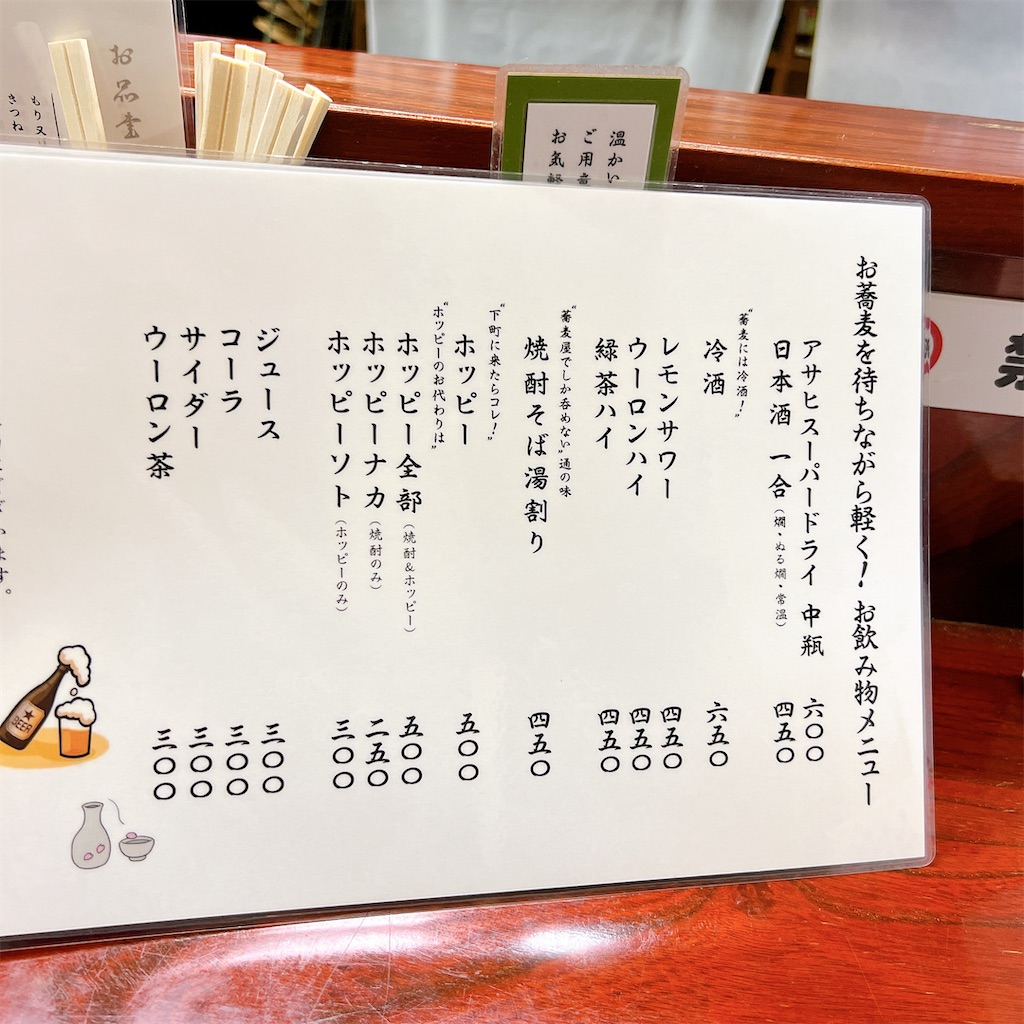 お蕎麦を待ちながら軽く！ お飲み物メニュー
アサヒスーパードライ 中瓶 六〇〇
日本酒 一合（燗・ぬる燗・常温） 四五〇
“蕎麦には冷酒！”
冷酒 六五〇
レモンサワー 四五〇
ウーロンハイ 四五〇
緑茶ハイ 四五〇
“蕎麦屋でしか呑めない”通の味
焼酎そば湯割り 四五〇
“下町に来たらコレ！”
ホッピー 五〇〇
“ホッピーのお代わりは”
ホッピー全部（焼酎＆ホッピー） 五〇〇
ホッピーナカ（焼酎のみ） 二五〇
ホッピーソト（ホッピーのみ） 三〇〇
ジュース 三〇〇
コーラ 三〇〇
サイダー 三〇〇
ウーロン茶 三〇〇
ざいます。
BEER
温かい
ご用意
お気軽
お品書
もり又は
きつね
禁